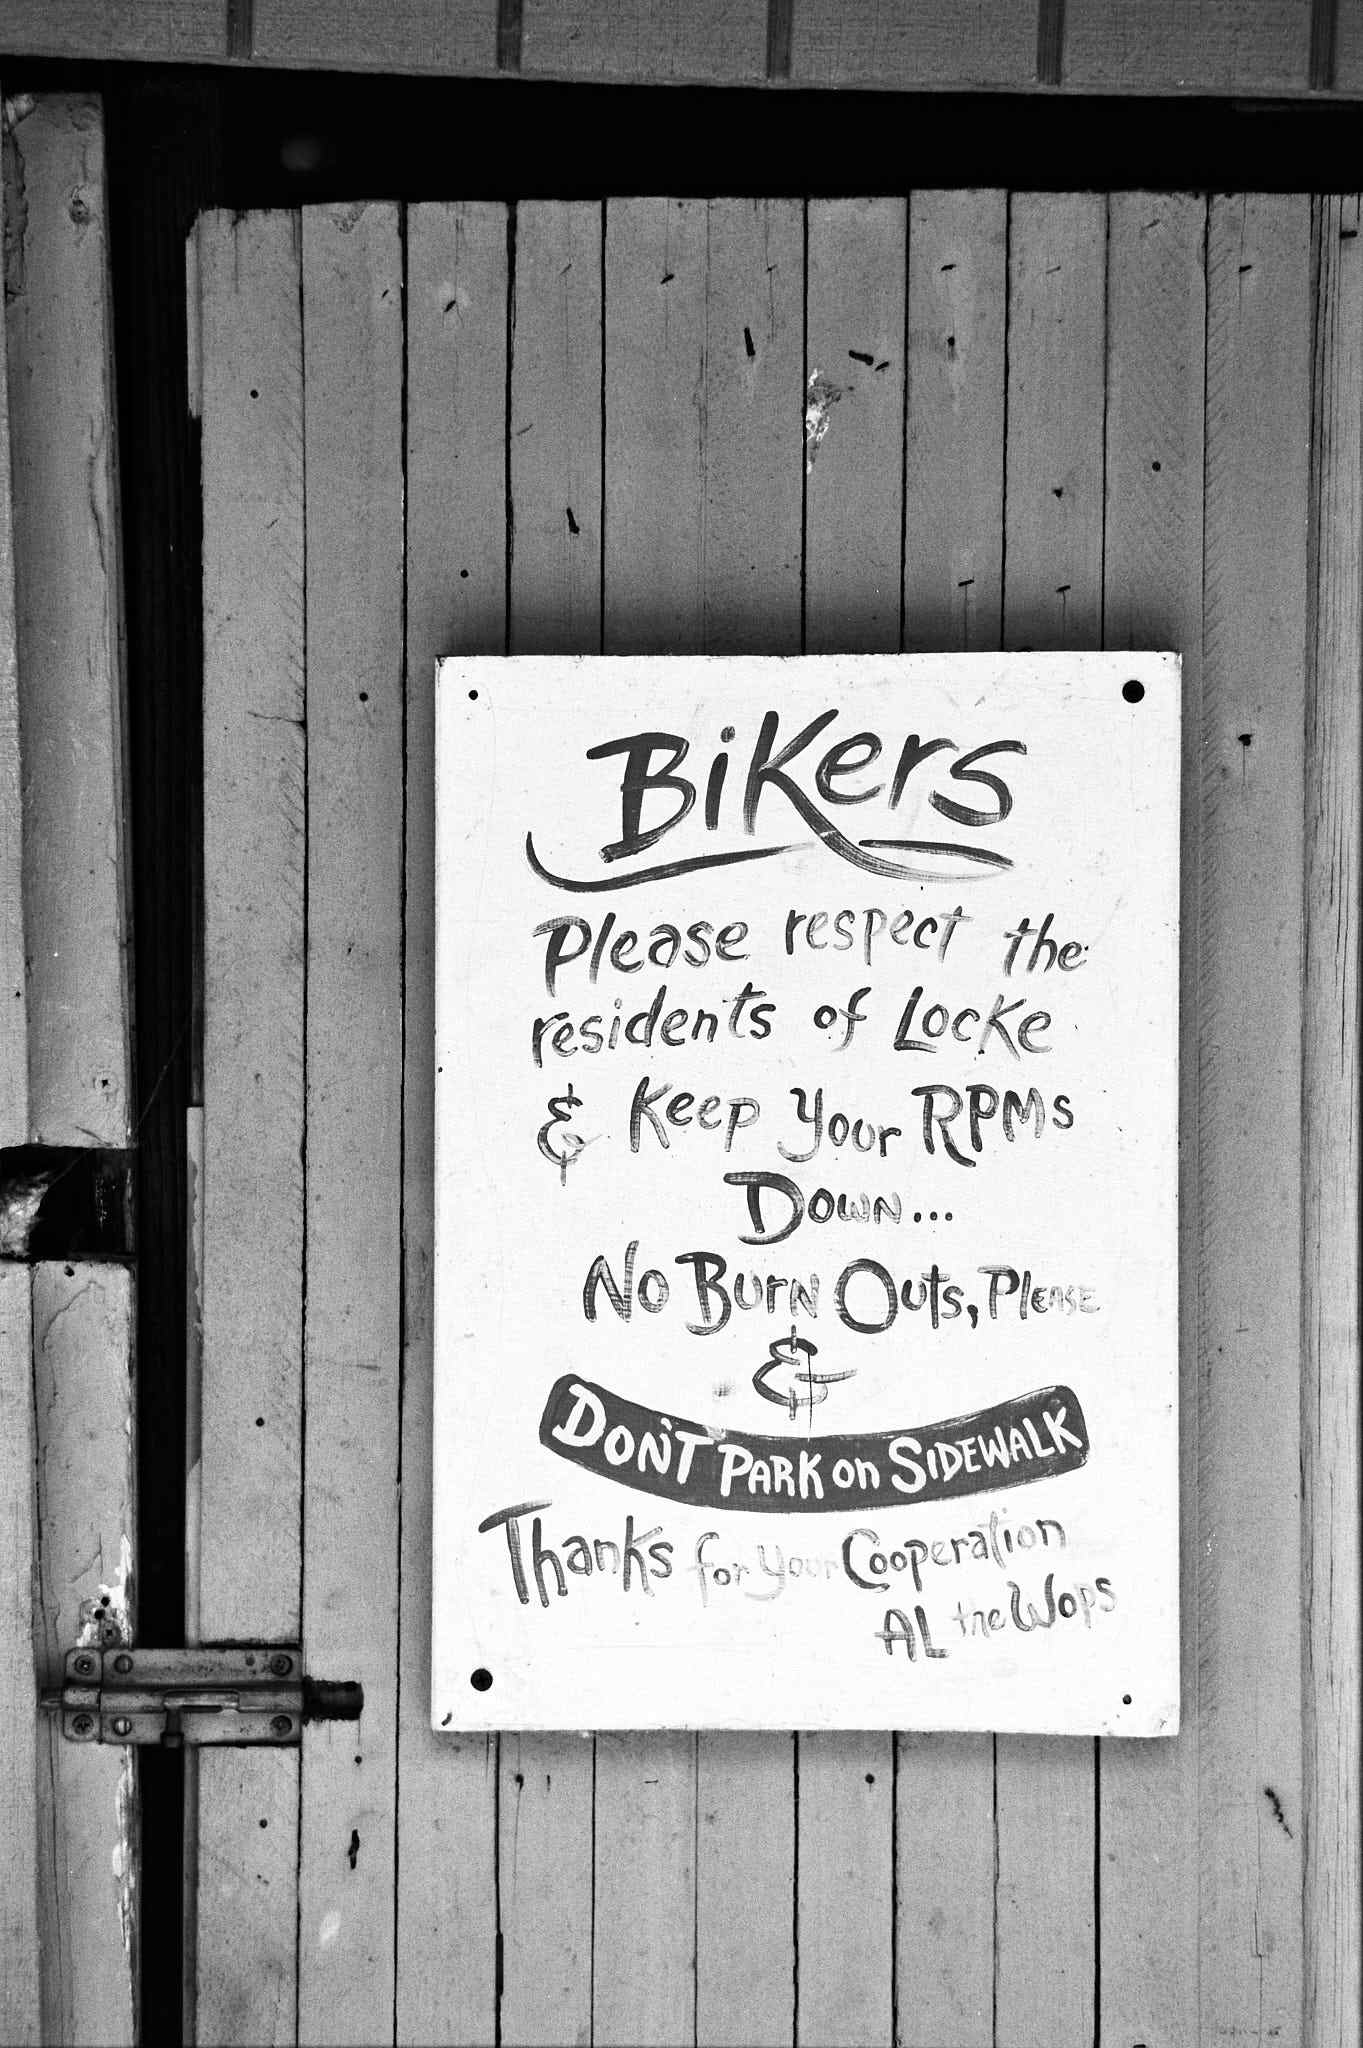 Bikers
Please respect the
residents of Locke
& Keep your RPMs
Down...
No Burn Outs, Please
&
DON'T PARK on SIDEWALK
Thanks for your Cooperation
AL the Wops